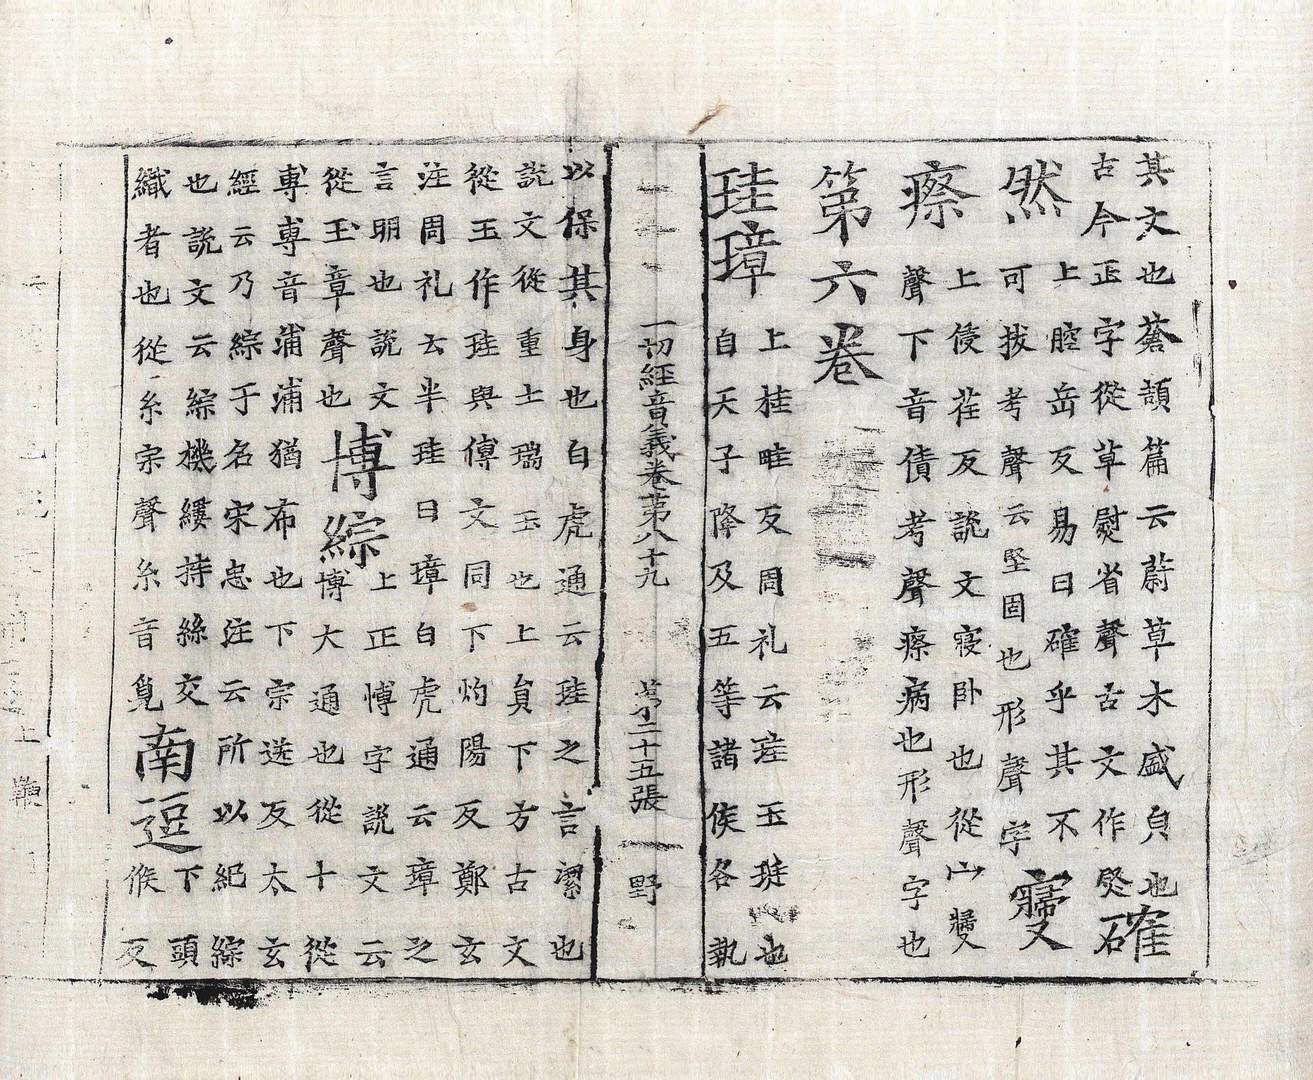 其文也蒼頡篇云蔚草木盛㒵也確
古今正字從草尉省聲古文作
然上腔岳反易曰確乎其不
可拔考聲云堅固也形聲字
瘵上侵荏反說文寑卧也從宀
聲下音債考聲瘵病也形聲字也
第六卷
珪璋上桂畦反周礼云珪玉也
自天子降及五等諸侯各執
一切經音義卷第八十九 第二十五張 野
以保其身也白虎通云珪之言潔也
說文從重土瑞玉也上貟下方古文
從玉作珪與傳文同下灼陽反鄭玄
注周礼云半珪曰璋白虎通云璋之
言明也說文從玉章聲也
博綜上正愽字說文云
博大通也從十從
尃尃音浦浦猶布也下宗送反太玄
經云乃綜于名宋忠注云所以紀綜
也說文云綜機縷持絲交
織者也從糸宗聲糸音覓
南逗下頭候反